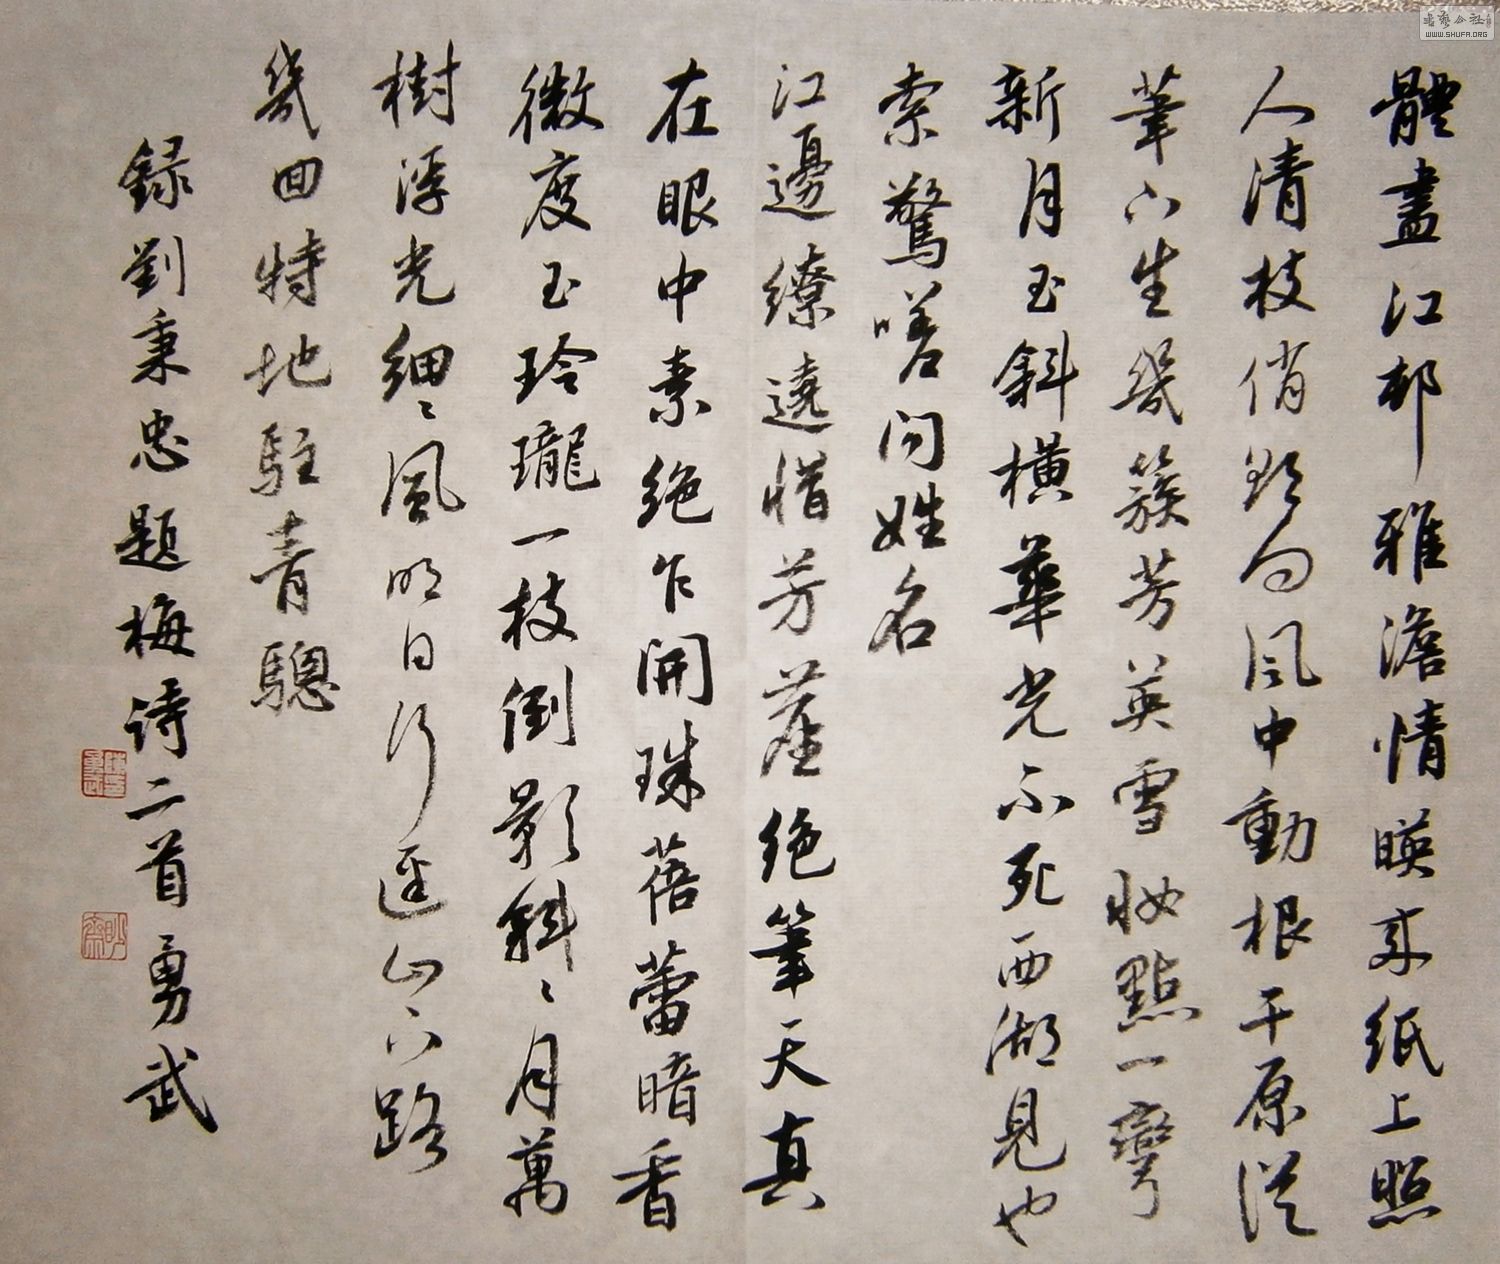 體盡江邨雅澹情暎來紙上照
人清枝俏影向風中動根干原從
筆下生幾簇芳英雪妝點一彎
新月玉斜橫華光不死西湖見也
索驚嗟問姓名
江邊繚遶惜芳叢絕筆天真
在眼中素絕乍開珠蓓蕾暗香
微度玉玲瓏一枝倒影斜〻月萬
樹浮光細〻風明日行逕山下路
幾回特地駐青驄
録劉秉忠題梅詩二首 勇武
書藝公社
WWW.SHUFA.ORG